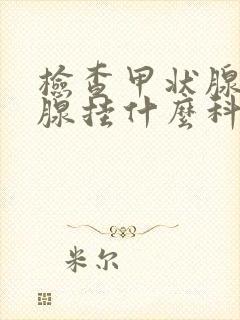 檢查甲状腺
腺挂什麼科
米尔